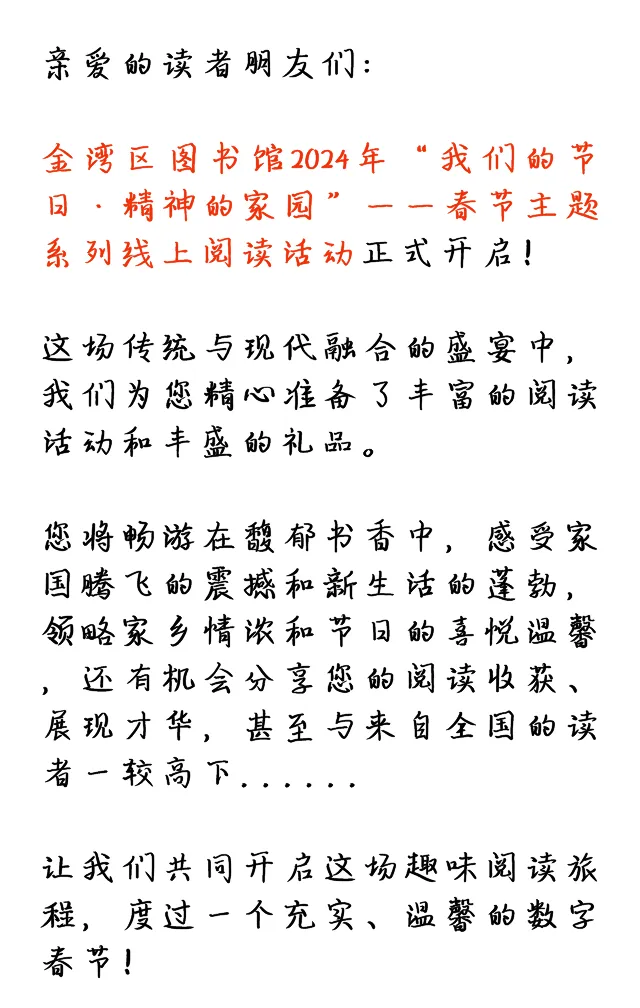 亲爱的读者朋友们：
金湾区图书馆2024年“我们的节
日·精神的家园”——春节主题
系列线上阅读活动正式开启！
这场传统与现代融合的盛宴中，
我们为您精心准备了丰富的阅读
活动和丰盛的礼品。
您将畅游在馥郁书香中，感受家
国腾飞的震撼和新生活的蓬勃，
领略家乡情浓和节日的喜悦温馨
，还有机会分享您的阅读收获、
展现才华，甚至与来自全国的读
者一较高下......
让我们共同开启这场趣味阅读旅
程，度过一个充实、温馨的数字
春节！